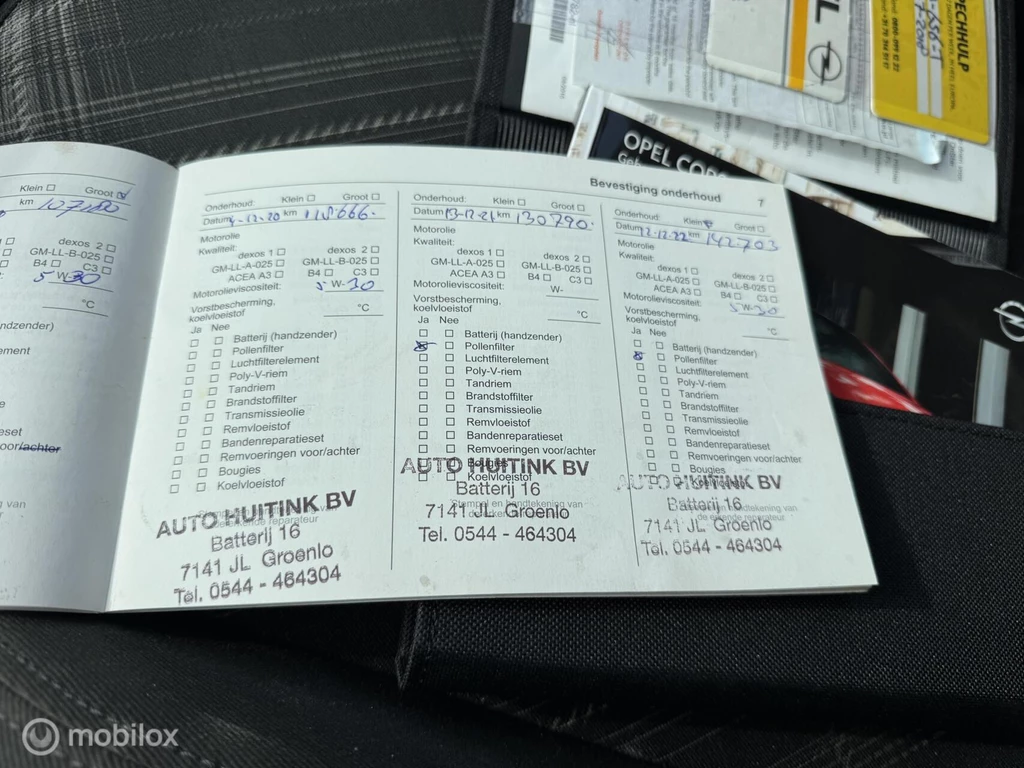 PECHHULP
OPEL CO
Bevestiging onderhoud
7
Klein ☐ Groot ☑
km 107.100
dexos 2 ☐
GM-LL-B-025 ☐
C3 ☐
5 W-30
°C
andzender)
ement
eset
oor/achter
g van
Onderhoud: Klein ☐ Groot ☐
Datum 4-12-20 km 118666.
Motorolie
Kwaliteit: dexos 1 ☐ dexos 2 ☐
GM-LL-A-025 ☐ GM-LL-B-025 ☐
ACEA A3 ☐ B4 ☐ C3 ☐
Motorolieviscositeit: 5 W-30
Vorstbescherming,
koelvloeistof °C
Ja Nee
☐ ☐ Batterij (handzender)
☐ ☐ Pollenfilter
☐ ☐ Luchtfilterelement
☐ ☐ Poly-V-riem
☐ ☐ Tandriem
☐ ☐ Brandstoffilter
☐ ☐ Transmissieolie
☐ ☐ Remvloeistof
☐ ☐ Bandenreparatieset
☐ ☐ Remvoeringen voor/achter
☐ ☐ Bougies
☐ ☐ Koelvloeistof
AUTO HUITINK BV
Batterij 16
7141 JL Groenlo
Tel. 0544 - 464304
Onderhoud: Klein ☐ Groot ☐
Datum 13-12-21 km 130790.
Motorolie
Kwaliteit: dexos 1 ☐ dexos 2 ☐
GM-LL-A-025 ☐ GM-LL-B-025 ☐
ACEA A3 ☐ B4 ☐ C3 ☐
Motorolieviscositeit: W-
Vorstbescherming,
koelvloeistof °C
Ja Nee
☐ ☐ Batterij (handzender)
☒ ☐ Pollenfilter
☐ ☐ Luchtfilterelement
☐ ☐ Poly-V-riem
☐ ☐ Tandriem
☐ ☐ Brandstoffilter
☐ ☐ Transmissieolie
☐ ☐ Remvloeistof
☐ ☐ Bandenreparatieset
☐ ☐ Remvoeringen voor/achter
☐ ☐ Bougies
☐ ☐ Koelvloeistof
Stempel en handtekening van
AUTO HUITINK BV
Batterij 16
7141 JL Groenlo
Tel. 0544 - 464304
Onderhoud: Klein ☒ Groot ☐
Datum 12-12-22 km 142703
Motorolie
Kwaliteit: dexos 1 ☐ dexos 2 ☐
GM-LL-A-025 ☐ GM-LL-B-025 ☐
ACEA A3 ☐ B4 ☐ C3 ☐
Motorolieviscositeit: 5 W-30
Vorstbescherming,
koelvloeistof °C
Ja Nee
☐ ☐ Batterij (handzender)
☒ ☐ Pollenfilter
☐ ☐ Luchtfilterelement
☐ ☐ Poly-V-riem
☐ ☐ Tandriem
☐ ☐ Brandstoffilter
☐ ☐ Transmissieolie
☐ ☐ Remvloeistof
☐ ☐ Bandenreparatieset
☐ ☐ Remvoeringen voor/achter
☐ ☐ Bougies
AUTO HUITINK BV
Batterij 16
7141 JL Groenlo
Tel. 0544 - 464304
mobilox